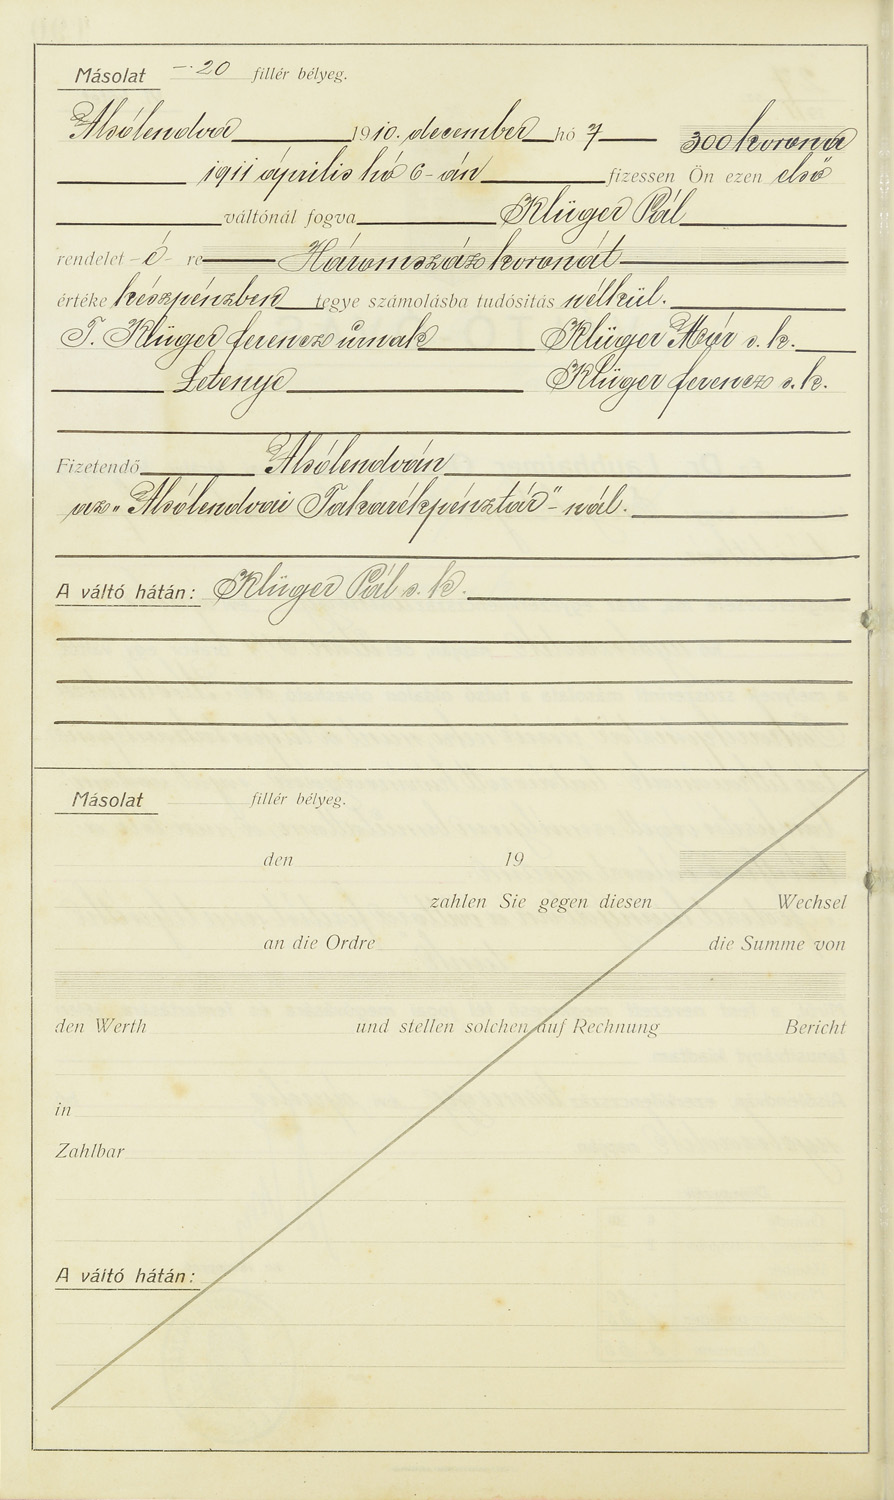 Másolat —·20 fillér bélyeg.
Alsólendva 1910. december hó 7 300 korona
1911 április hó 6-án fizessen Ön ezen első
váltónál fogva Klüger Pál
rendelet -é- re Háromszáz koronát
értéke készpénzben tegye számolásba tudósitás nélkül.
T. Klüger ferencz úrnak Klüger Mór s. k.
Letenye Klüger ferencz s. k.
Fizetendő Alsólendván
az „Alsólendvai Takarékpénztár"-nál.
A váltó hátán: Klüger Pál s. k.
Másolat fillér bélyeg.
den 19
zahlen Sie gegen diesen Wechsel
an die Ordre die Summe von
den Werth und stellen solchen auf Rechnung Bericht
in
Zahlbar
A váltó hátán: